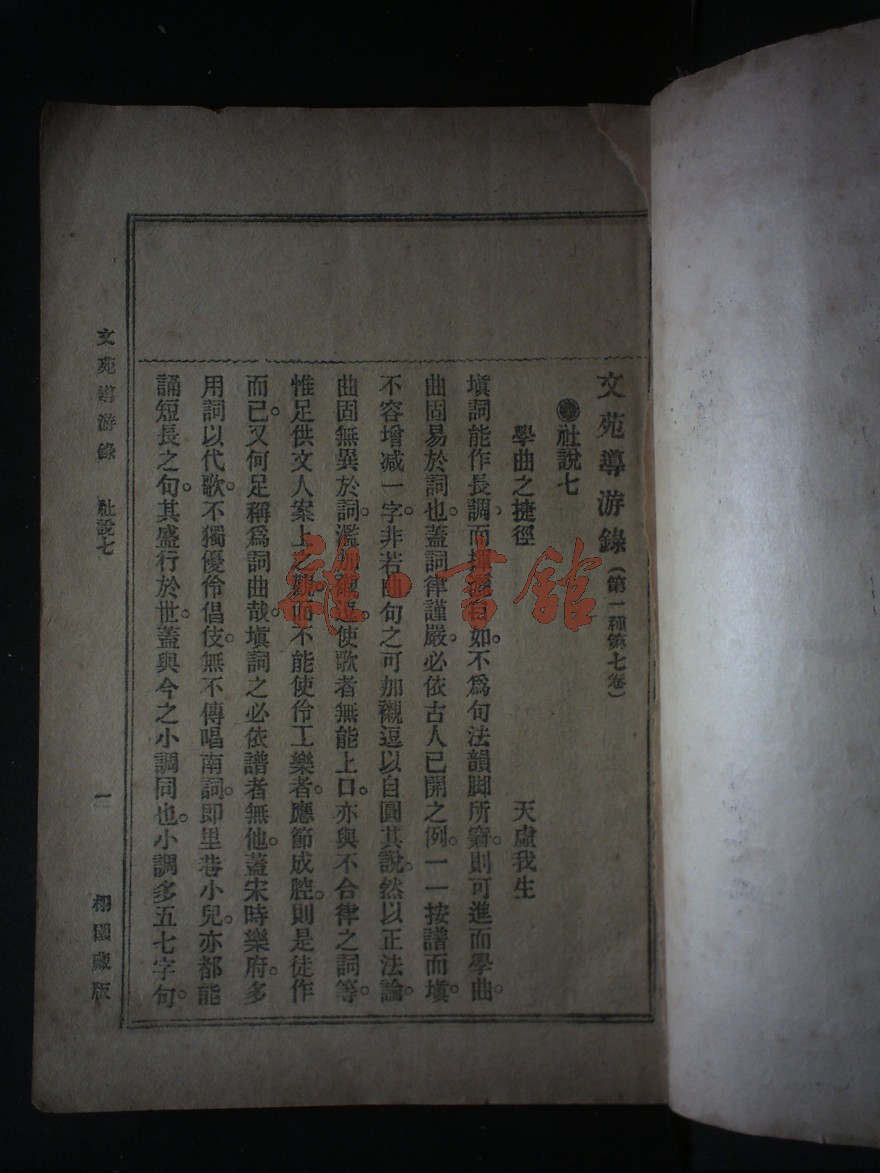 文苑導游錄（第一種第七卷）
社說七
學曲之捷徑　天虛我生
塡詞能作長調而揮灑自如。不爲句法韻脚所窘。則可進而學曲。
曲固易於詞也。蓋詞律謹嚴。必依古人已開之例。一一按譜而塡。
不容增减一字。非若曲句之可加襯逗以自圓其說。然以正法論。
曲固無異於詞。濫加襯逗。使歌者無能上口。亦與不合律之詞等。
惟足供文人案上之觀。而不能使伶工樂者。應節成腔。則是徒作
而已。又何足稱爲詞曲哉。塡詞之必依譜者無他。蓋宋時樂府。多
用詞以代歌。不獨優伶倡伎。無不傳唱南詞。即里巷小兒。亦都能
誦短長之句。其盛行於世。蓋與今之小調同也。小調多五七字句。
文苑導游錄　社說七　一　栩園藏版
雜·書館